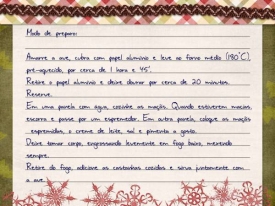 Modo de preparo:
Amarre a ave, cubra com papel alumínio e leve ao forno médio (180°C),
pré-aquecido, por cerca de 1 hora e 45'.
Retire o papel alumínio e deixe dourar por cerca de 20 minutos.
Reserve.
Em uma panela com água, cozinhe as maçãs. Quando estiverem macias
escorra e passe por um espremedor. Em outra panela, coloque as maçãs
espremidas, o creme de leite, sal e pimenta a gosto.
Deixe tomar corpo, engrossando levemente em fogo baixo, mexendo
sempre.
Retire do fogo, adicione as castanhas cozidas e sirva juntamente com
a ave.